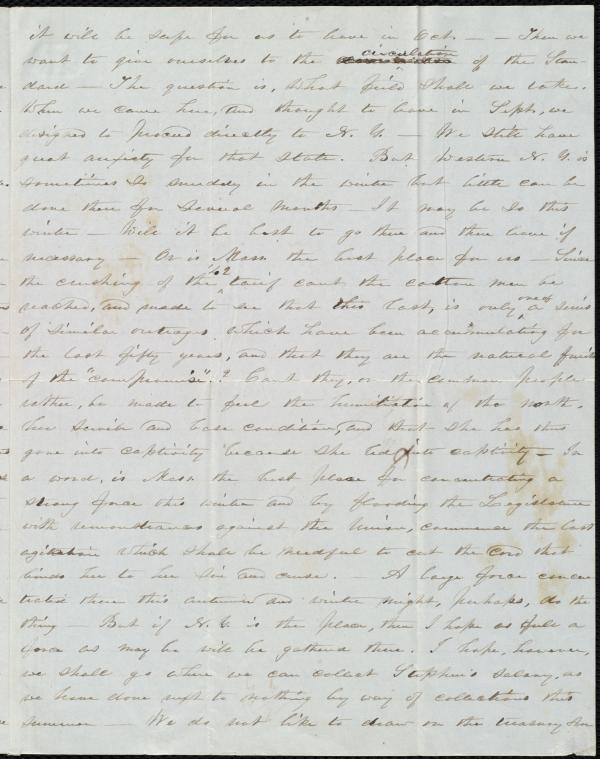 it will be safe for us to leave in Oct. — — Then we
want to give ourselves to the circulation of the Stan
dard — The question is, what field shall we take.
When we came here, and thought to leave in Sept, we
designed to proceed directly to N. Y. — We still have
great anxiety for that State. But Western N. Y. is
sometimes so muddy in the winter but little can be
done there for several months — It may be so this
winter — Will it be best to go there and then leave if
necessary — Or is Mass the best place for us — Since
the crushing of the 42 tarif cant the cotton men be
reached, and made to see that this last, is only one of a series
of similar outrages which have been accumulating for
the last fifty years, and that they are the natural fruits
of the "compromise"? Cant they, or the common people
rather, be made to feel the humiliation of the north.
Her servile and base condition, and that she has thus
gone into captivity because she led into captivity — In
a word, is Mass the best place for concentrating a
strong force this winter and by flooding the Legislature
with remonstrances against the Union, commence the last
agitation which shall be needful to cut the cord that
binds her to her sin and curse. — A large force concen
trated there this autumn and winter might, perhaps, do the
thing — But if N. Y. is the place, then I hope as full a
force as may be will be gathered there. I hope, however,
we shall go where we can collect Stephen's salary, as
we have done next to nothing by way of collections this
summer — We do not like to draw on the treasury for